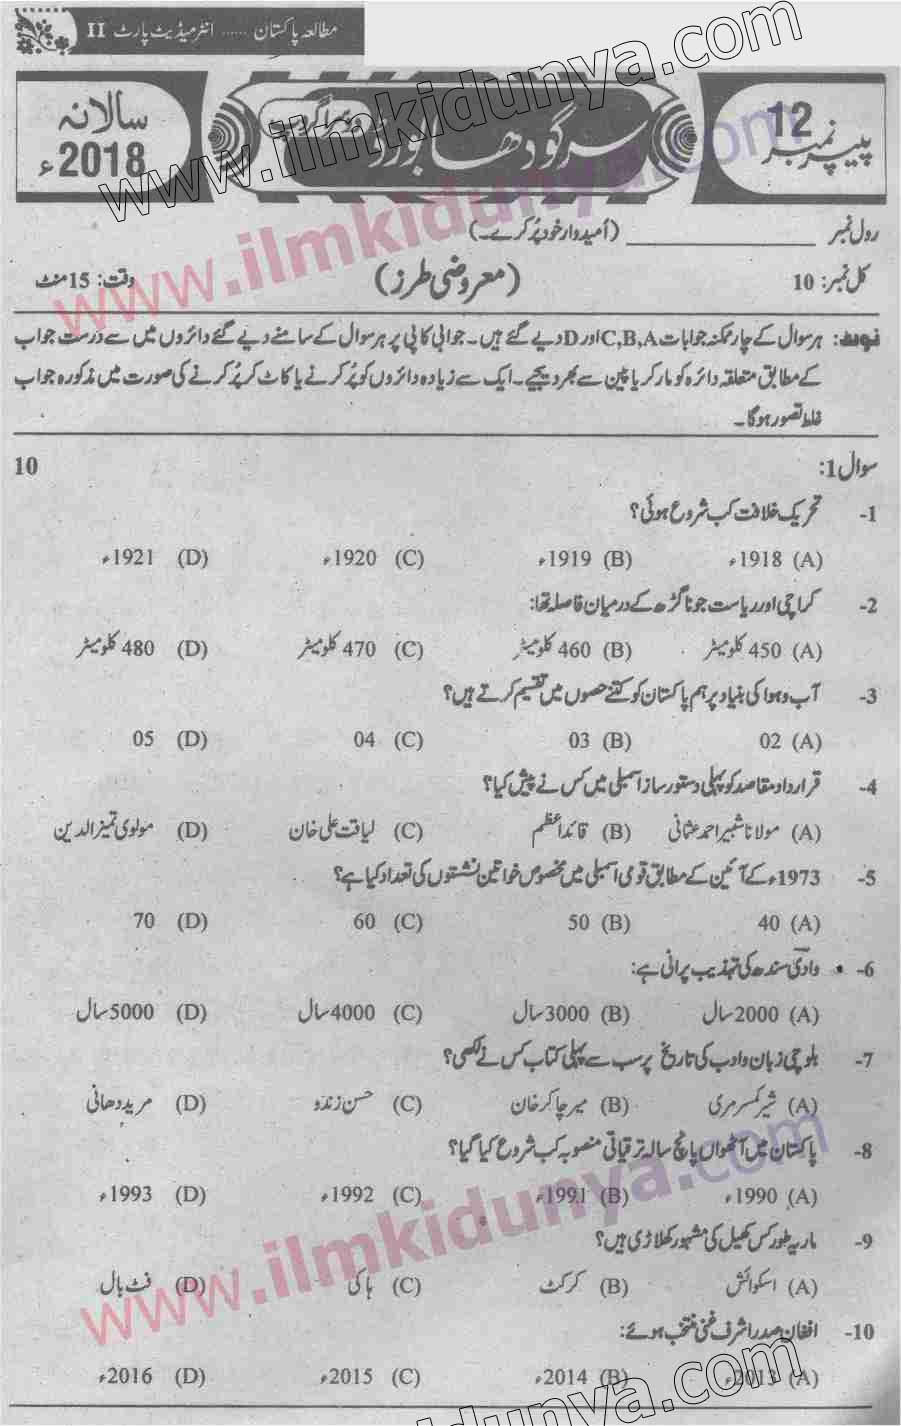 مطالعہ پاکستان ...... انٹرمیڈیٹ پارٹ II
پیپر نمبر 12
سرگودھا بورڈ
دوسرا گروپ
سالانہ 2018ء
رول نمبر ____________ (اُمیدوار خود پُر کرے۔)
کل نمبر: 10 (معروضی طرز) وقت: 15 منٹ
نوٹ: ہر سوال کے چار ممکنہ جوابات C,B,A اور D دیے گئے ہیں۔ جوابی کاپی پر ہر سوال کے سامنے دیے گئے دائروں میں سے درست جواب
کے مطابق متعلقہ دائرہ کو مارکر یا پین سے بھر دیجیے۔ ایک سے زیادہ دائروں کو پُر کرنے یا کاٹ کر پُر کرنے کی صورت میں مذکورہ جواب
غلط تصور ہوگا۔
سوال 1: 10
1- تحریک خلافت کب شروع ہوئی؟
(A) 1918ء (B) 1919ء (C) 1920ء (D) 1921ء
2- کراچی اور ریاست جوناگڑھ کے درمیان فاصلہ تھا:
(A) 450 کلومیٹر (B) 460 کلومیٹر (C) 470 کلومیٹر (D) 480 کلومیٹر
3- آب و ہوا کی بنیاد پر ہم پاکستان کو کتنے حصوں میں تقسیم کرتے ہیں؟
(A) 02 (B) 03 (C) 04 (D) 05
4- قرارداد مقاصد کو پہلی دستور ساز اسمبلی میں کس نے پیش کیا؟
(A) مولانا شبیر احمد عثمانی (B) قائداعظم (C) لیاقت علی خان (D) مولوی تمیز الدین
5- 1973ء کے آئین کے مطابق قومی اسمبلی میں مخصوص خواتین نشستوں کی تعداد کیا ہے؟
(A) 40 (B) 50 (C) 60 (D) 70
6- وادیٔ سندھ کی تہذیب پرانی ہے:
(A) 2000 سال (B) 3000 سال (C) 4000 سال (D) 5000 سال
7- بلوچی زبان و ادب کی تاریخ پر سب سے پہلی کتاب کس نے لکھی؟
(A) شیر کمسر مری (B) میر چاکر خان (C) حسن زندہ (D) مرید دھانی
8- پاکستان میں آٹھواں پانچ سالہ ترقیاتی منصوبہ کب شروع کیا گیا؟
(A) 1990ء (B) 1991ء (C) 1992ء (D) 1993ء
9- ماریہ طور کس کھیل کی مشہور کھلاڑی ہیں؟
(A) اسکوائش (B) کرکٹ (C) ہاکی (D) فٹ بال
10- افغان صدر اشرف غنی منتخب ہوئے:
(A) 2013ء (B) 2014ء (C) 2015ء (D) 2016ء
www.ilmkidunya.com
www.ilmkidunya.com
www.ilmkidunya.com
www.ilmkidunya.com